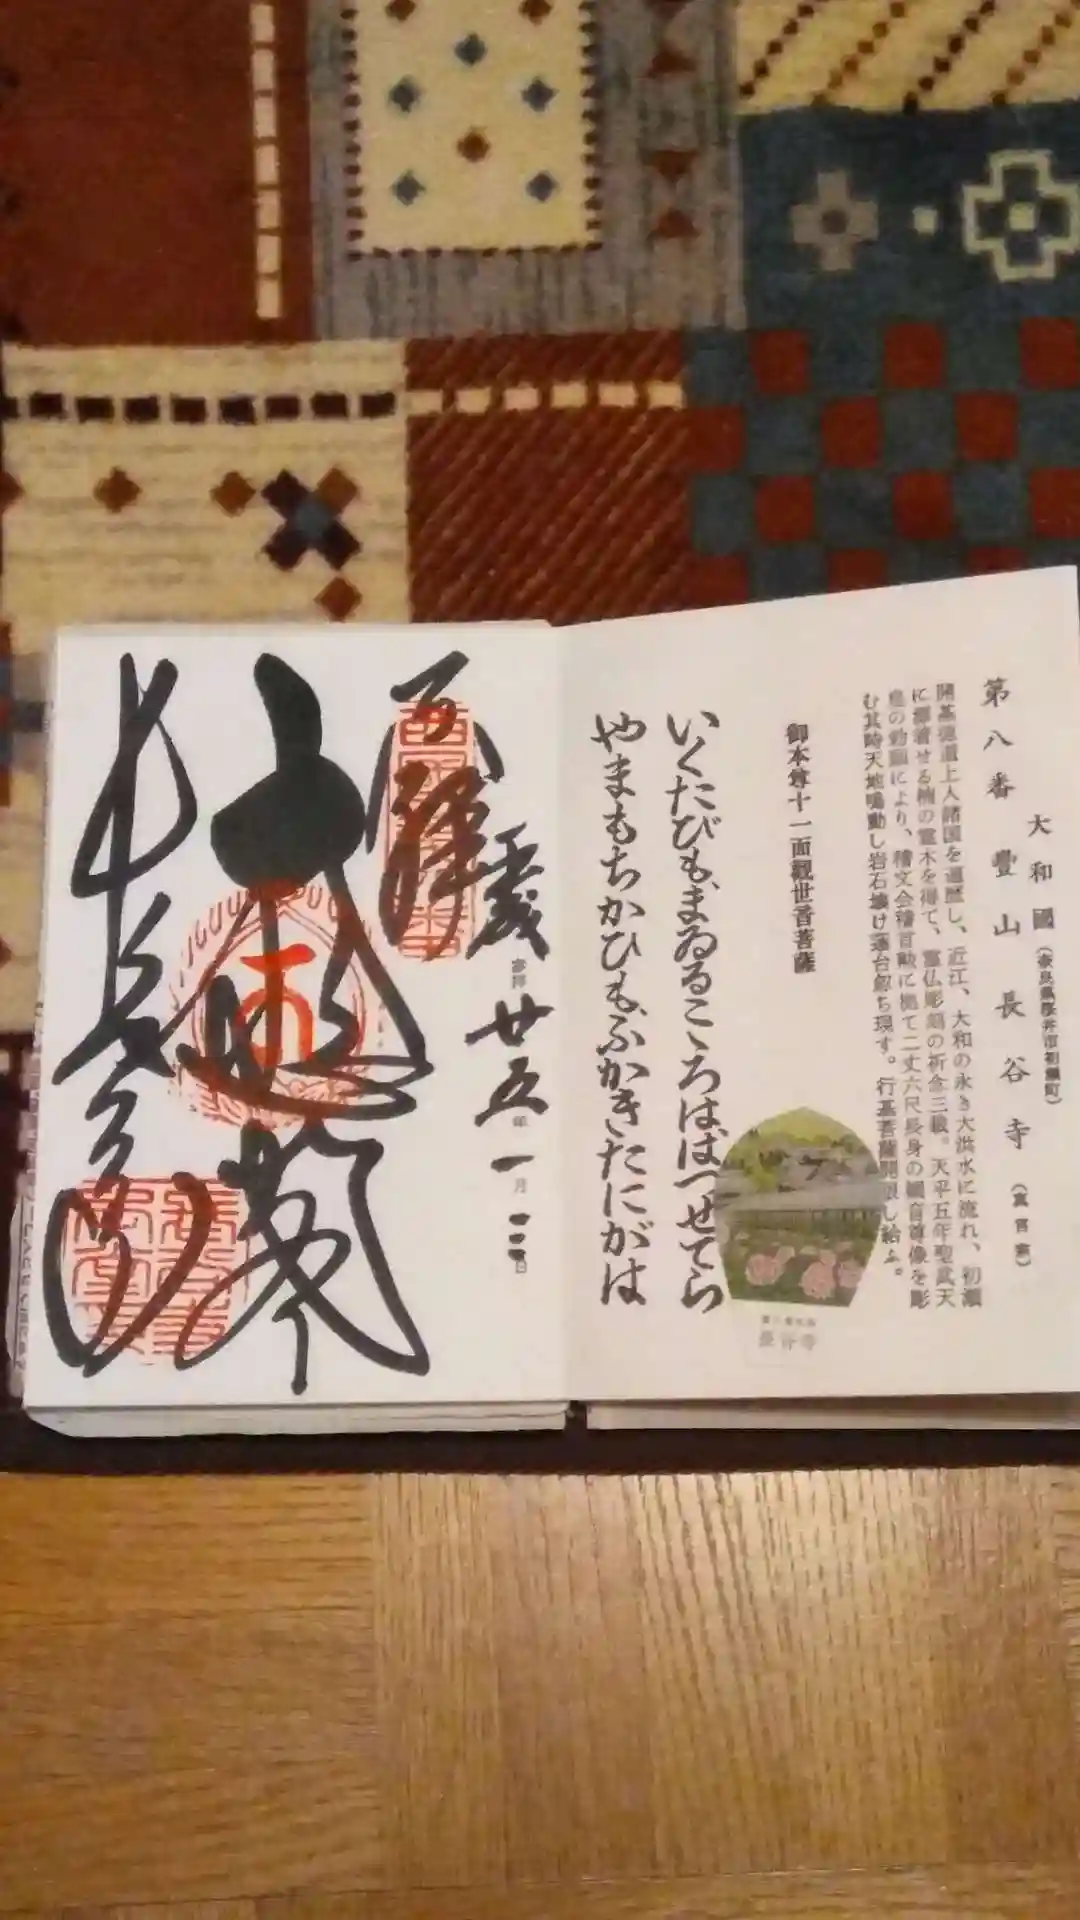 大和國（奈良縣桜井市初瀬町）
第八番 豐山 長谷寺（真言宗）
開基徳道上人諸国を遍歴し、近江、大和の永き大洪水に流れ、初瀬
に漂着せる楠の霊木を得て、霊仏彫刻の祈念三歳。天平五年聖武天
皇の勅願により、稽文会稽首勲に拠て二丈六尺長身の観音尊像を彫
む其時天地鳴動し岩石壊け蓮台忽ち現す。行基菩薩開眼し給ふ。
御本尊十一面觀世音菩薩
いくたびも、まゐるこころは、はつせてら
やまもちかひも、ふかきたにがは
長谷寺
奉拝
平成
参拝
廿五年一月二日
大悲閣
長谷寺